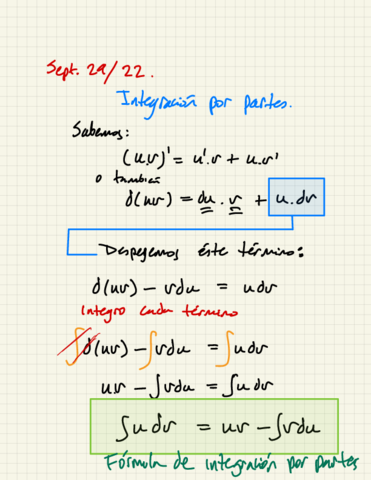 Sept. 29/22.
Integración por partes.
Sabemos:
(u.v)' = u'.v + u.v'
o también
d(uv) = du . v + u.dv
Despejemos éste término:
d(uv) - vdu = udv
Integro cada término
∫d(uv) - ∫vdu = ∫udv
u.v - ∫vdu = ∫udv
∫udv = uv - ∫vdu
Fórmula de integración por partes